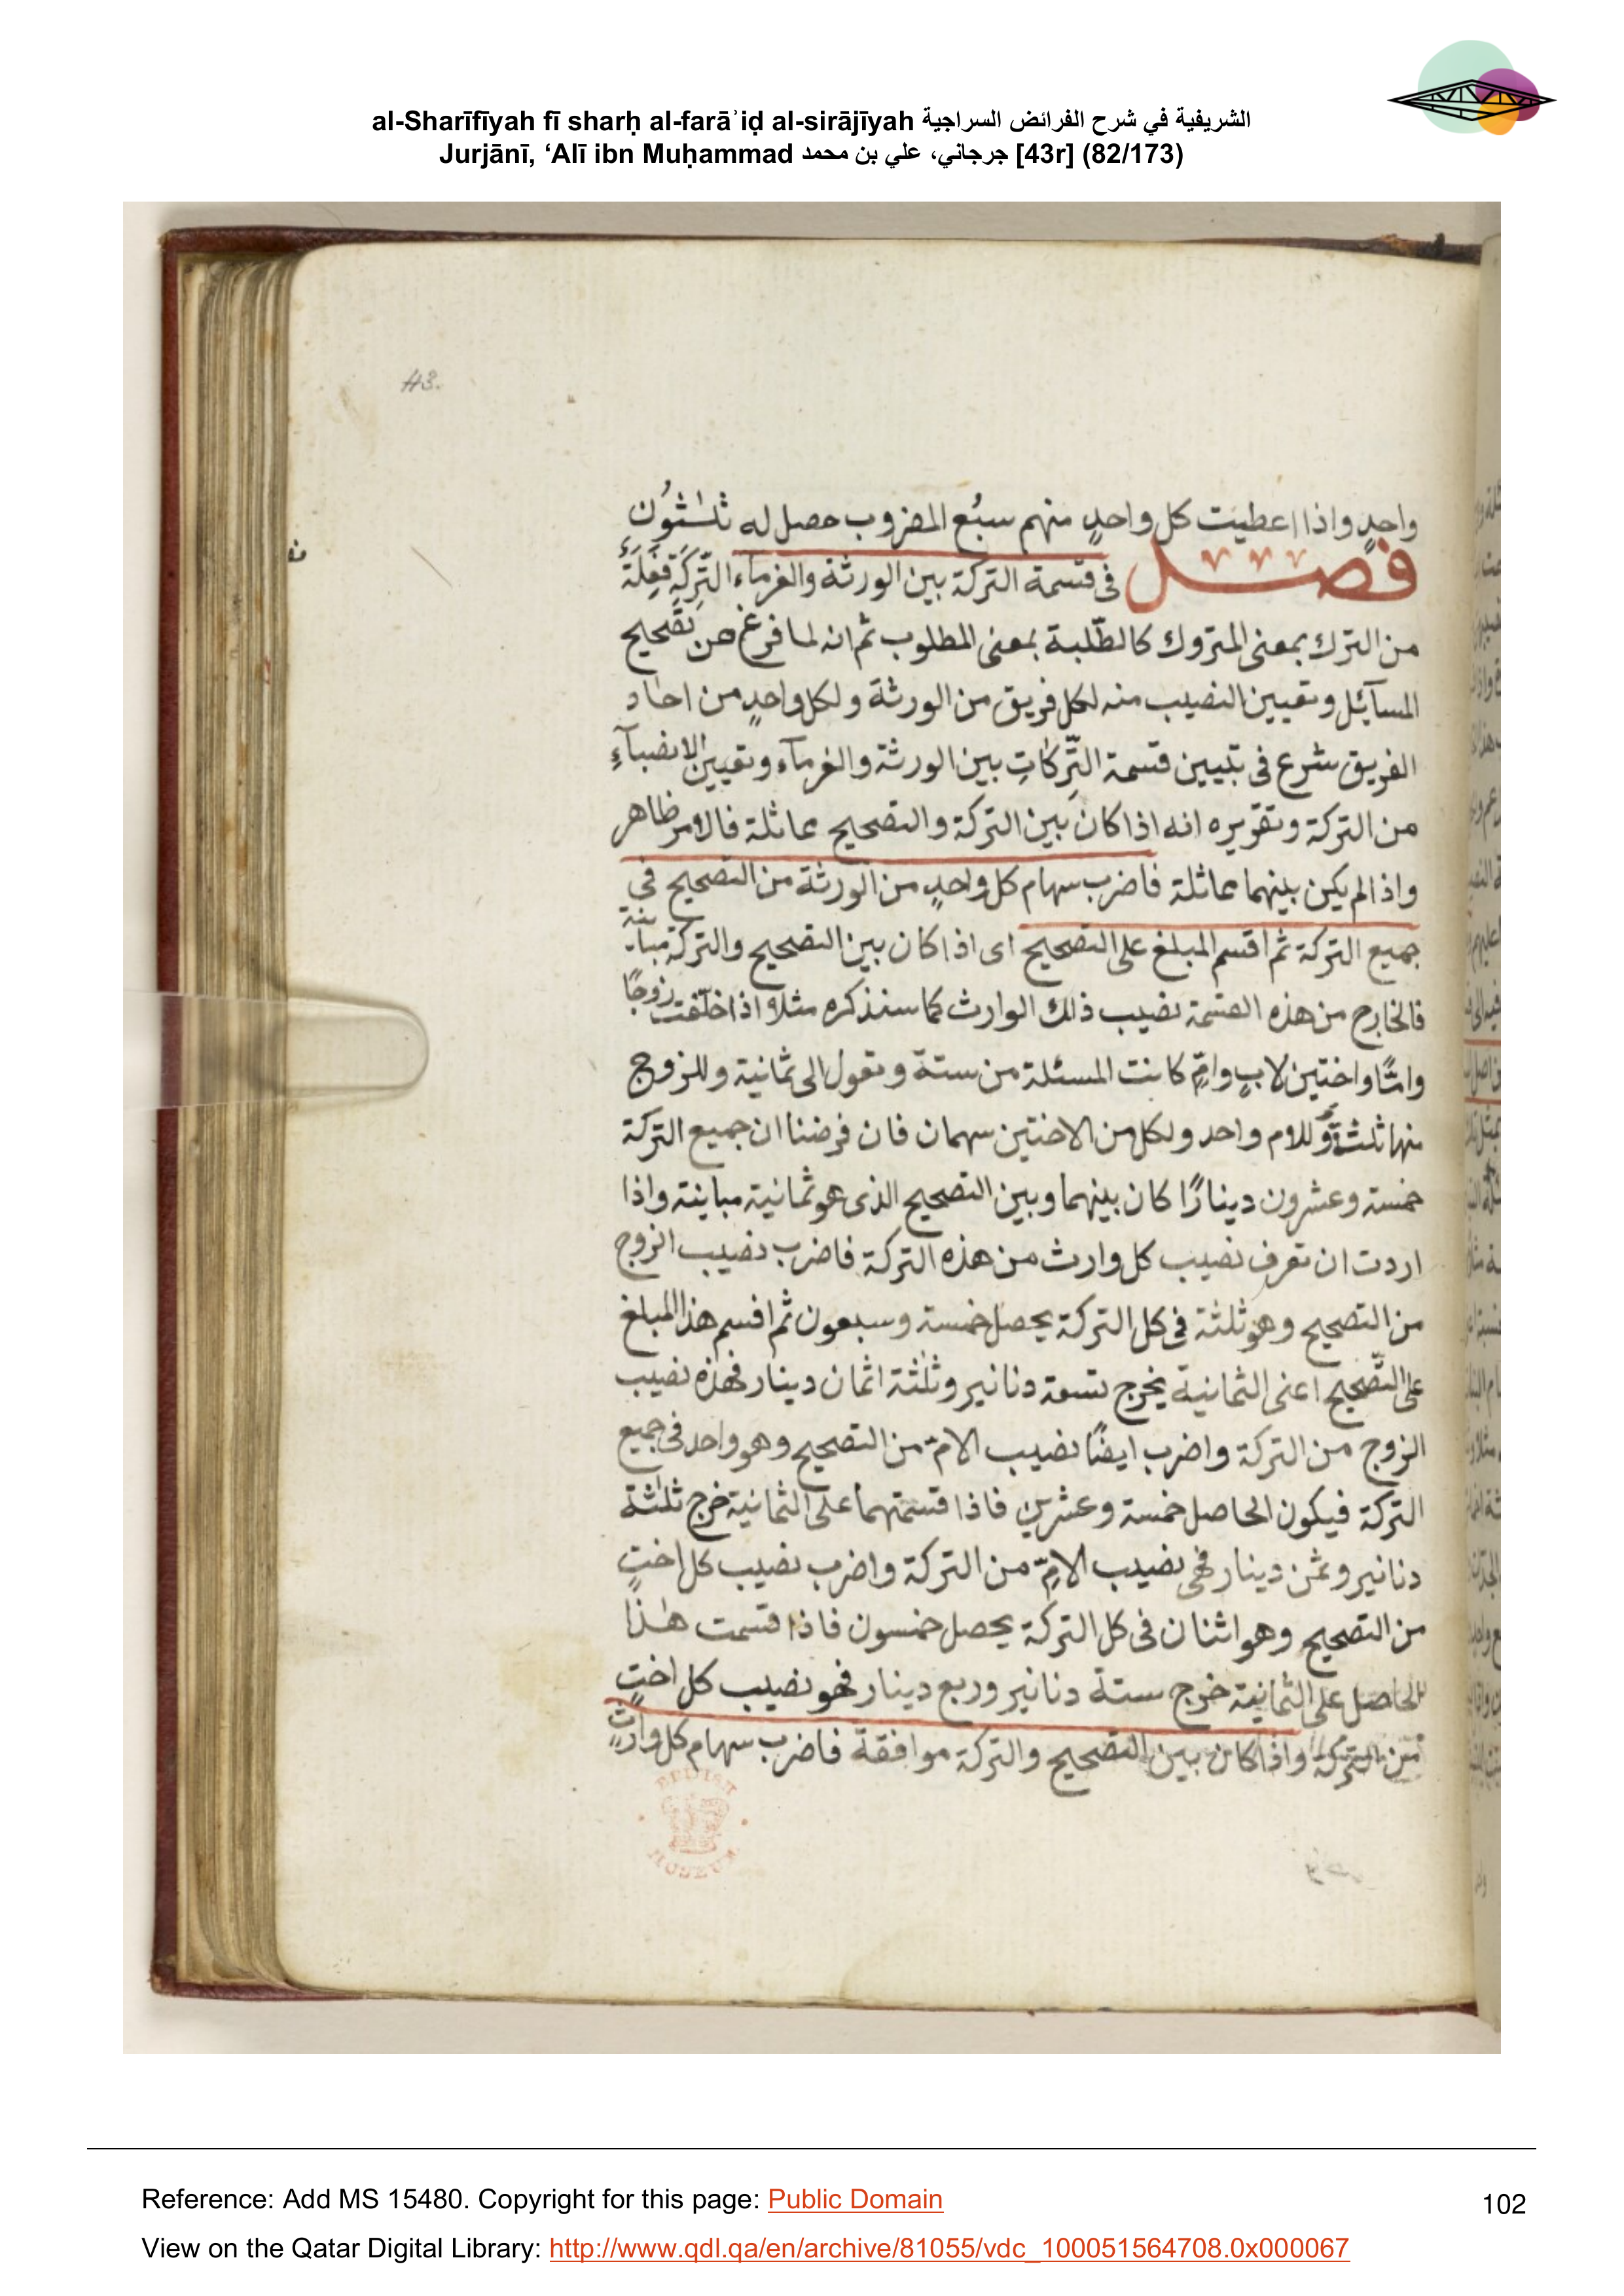 al-Sharīfīyah fī sharḥ al-farāʾiḍ al-sirājīyah الشريفية في شرح الفرائض السراجية
Jurjānī, ‘Alī ibn Muḥammad جرجاني، علي بن محمد [43r] (82/173)
43.
واحدٍ واذا اعطيت كل واحدٍ منهم سبُع المضروب حصل له ثلٰثُون
فصل في قسمة التركة بين الورثة والغرماء التَرِكَة فَعِلَةٌ
من الترك بمعنى المتروك كالطّلبة بمعنى المطلوب ثم انه لما فرغ من تصحيح
المسآئل وتعيين النصيب منه لكل فريق من الورثة ولكل واحدٍ من احاد
الفريق شرع في تبيين قسمة التَّرِكاتِ بين الورثة والغرمآء وتعيين الانصبآءِ
من التركة وتقريره انه اذا كان بين التركة والتصحيح مماثلة فالامر ظاهر
واذا لم يكن بينهما مماثلة فاضرب سهام كل واحدٍ من الورثة من التصحيح في
جميع التركة ثم اقسم المبلغ على التصحيح اى اذا كان بين التصحيح والتركة مباينة
فالخارج من هذه القسمة نصيب ذلك الوارث كما سنذكره مثلا اذا خلّفت زوجًا
وامًّا واختين لابٍ وامٍّ كانت المسئلة من ستة وتعول الى ثمانية وللزوج
منها ثلثة وللام واحد ولكل من الاختين سهمان فان فرضنا ان جميع التركة
خمسة وعشرون دينارًا كان بينهما وبين التصحيح الذى هو ثمانية مباينة واذا
اردت ان تعرف نصيب كل وارث من هذه التركة فاضرب نصيب الزوج
من التصحيح وهو ثلثة في كل التركة يحصل خمسة وسبعون ثم اقسم هذا المبلغ
على التّصحيح اعنى الثمانية يخرج تسعة دنانير وثلٰثة اثمان دينار فهذه نصيب
الزوج من التركة واضرب ايضًا نصيب الامّ من التصحيح وهو واحد في جميع
التركة فيكون الحاصل خمسة وعشرين فاذا قسمتهما على الثمانية خرج ثلٰثة
دنانير وثمن دينار فهى نصيب الامِّ من التركة واضرب نصيب كل اختٍ
من التصحيح وهو اثنان في كل التركة يحصل خمسون فاذا قسمت هٰذا
الحاصل على الثمانية خرج ستة دنانير وربع دينار فهو نصيب كل اختٍ
من التركة واذا كان بين التصحيح والتركة موافقة فاضرب سهام كل وارثٍ
BRITISH
MUSEUM
Reference: Add MS 15480. Copyright for this page: Public Domain
102
View on the Qatar Digital Library: http://www.qdl.qa/en/archive/81055/vdc_100051564708.0x000067